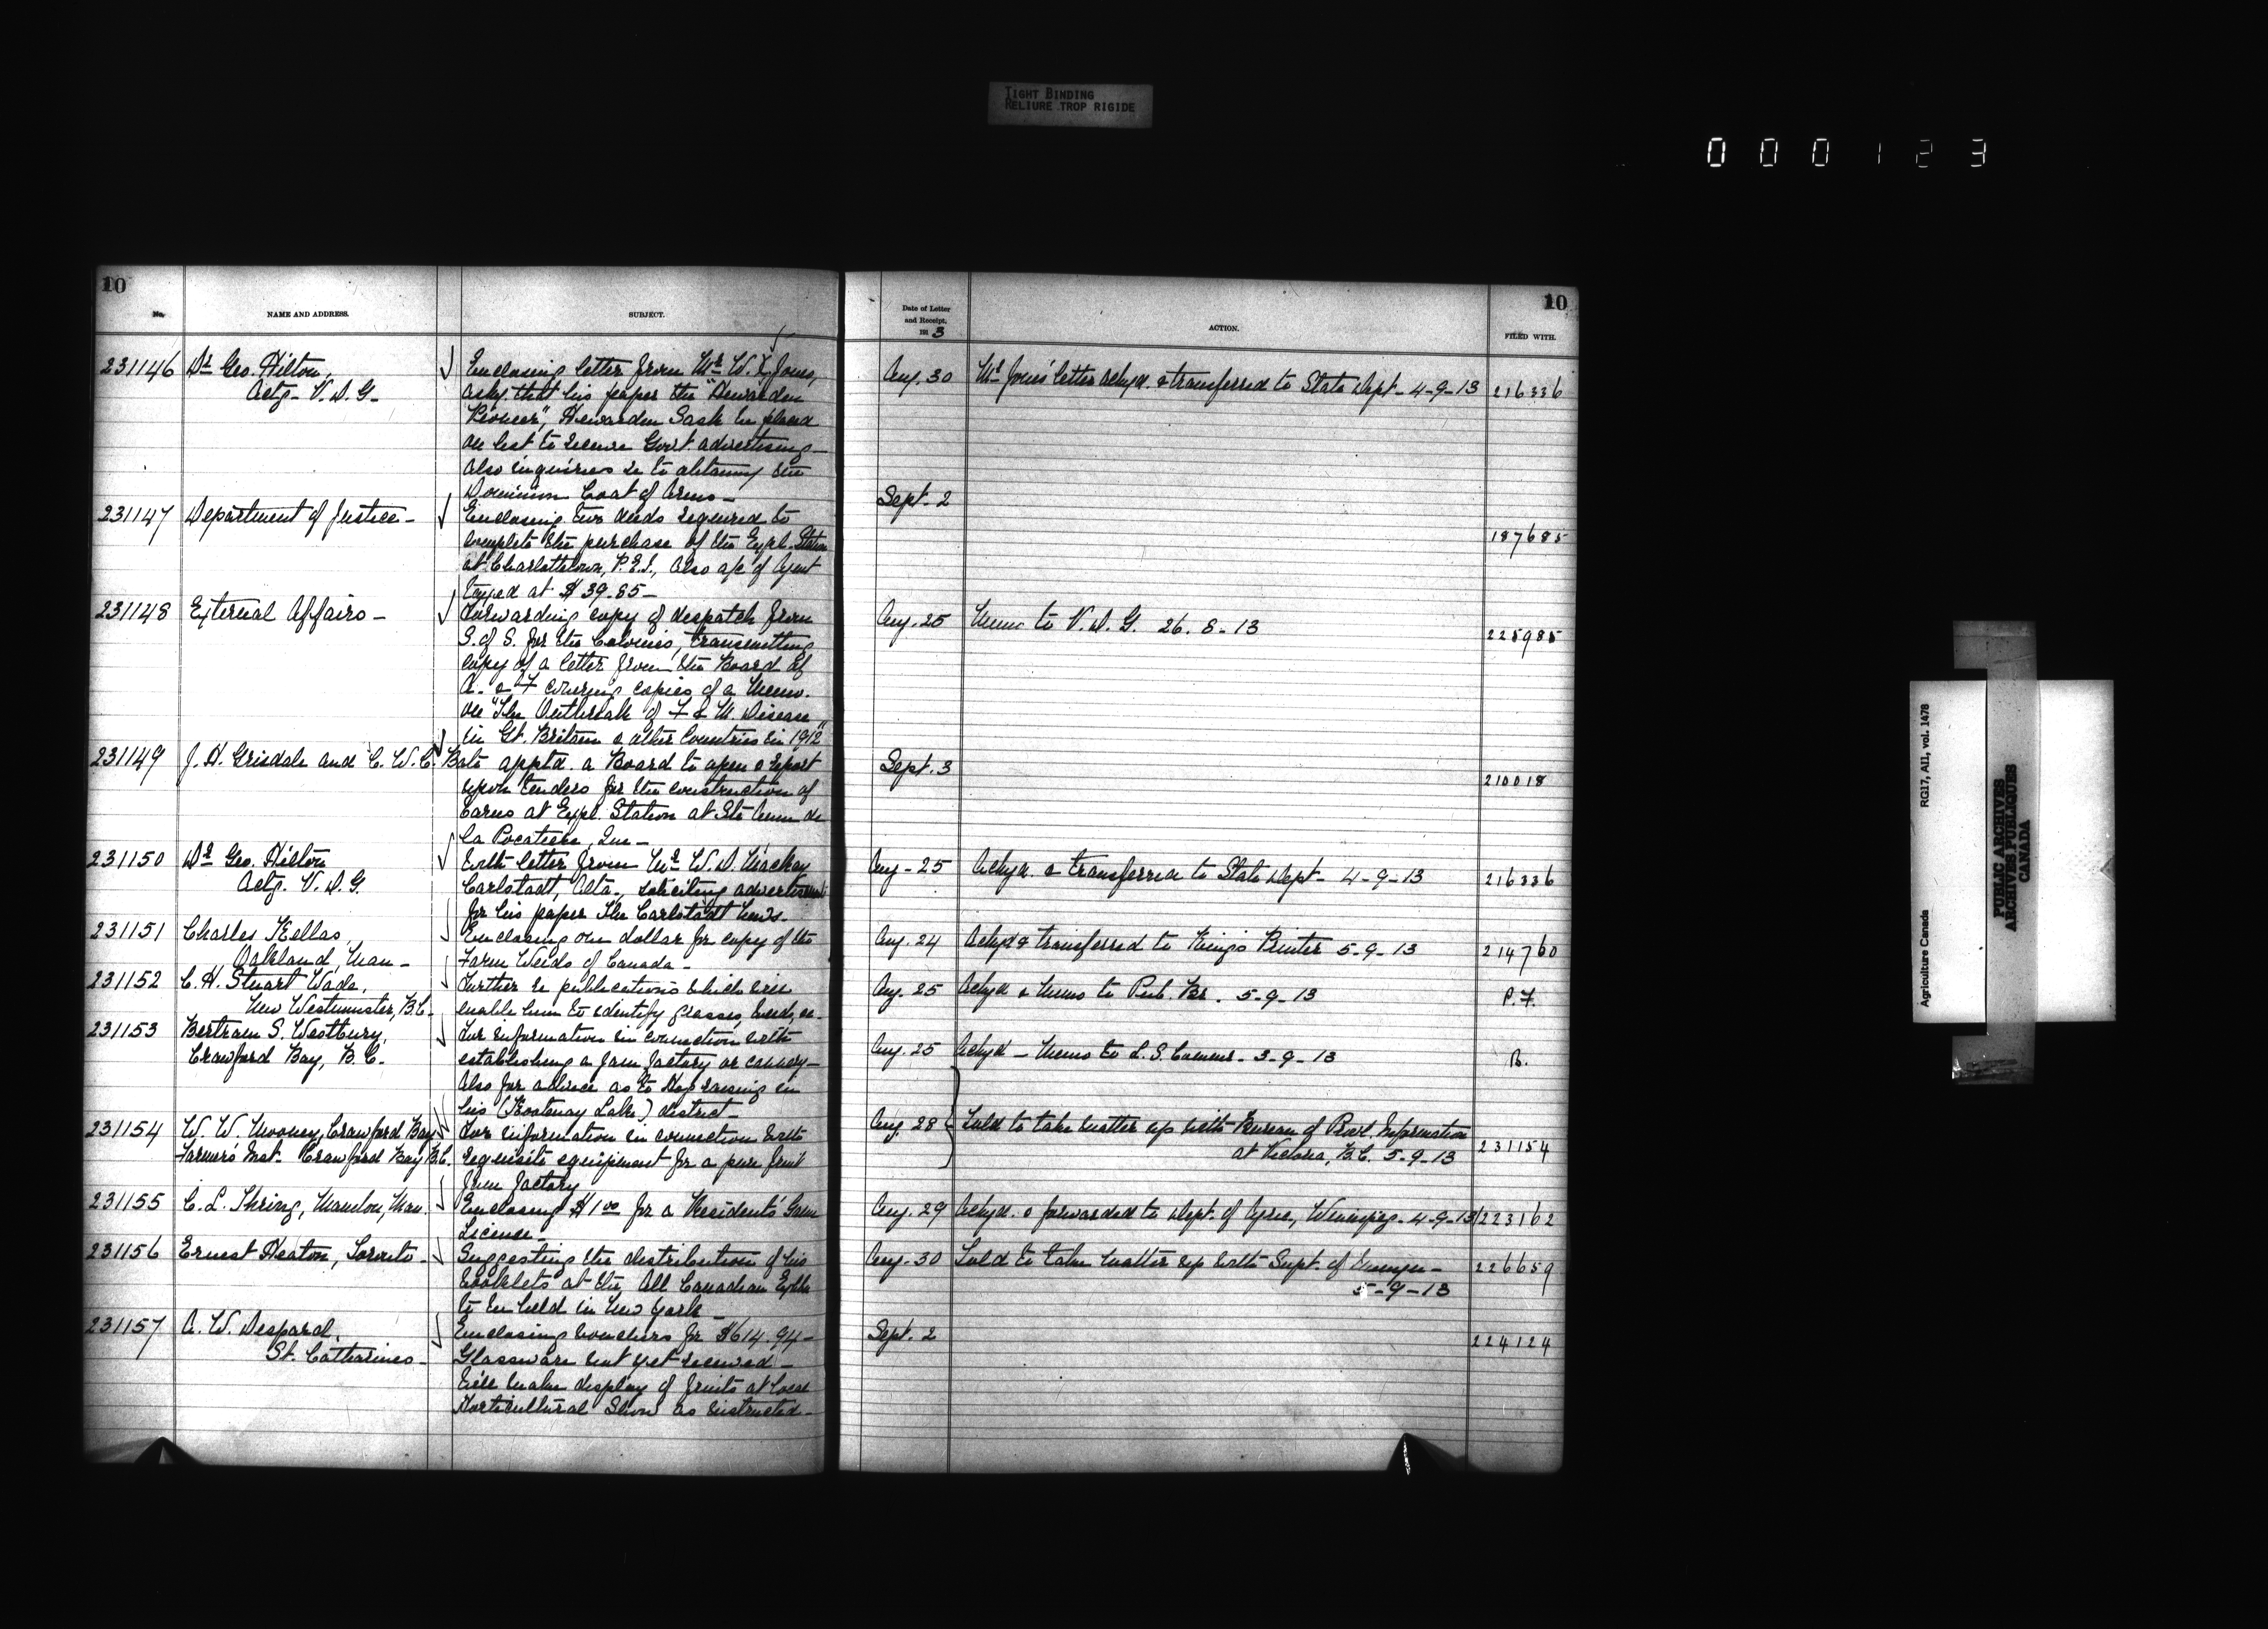 TIGHT BINDING
RELIURE TROP RIGIDE
000123
10
No.
NAME AND ADDRESS.
SUBJECT.
231146
Dr. Geo. Hilton,
Actg. V.D.G.
Enclosing letter from Mr. W. L. Jones,
asky. that his paper the "Hawarden
Pioneer", Hawarden Sask be placed
on list to receive Govt. advertising -
Also inquiries re to obtaining the
Dominion Coat of Arms -
231147
Department of Justice -
Enclosing two deeds required to
complete the purchase of the Expl. Station
at Charlottetown, P.E.I., Also a/c of Agent
taxed at $39.85 -
231148
External Affairs -
Forwarding copy of despatch from
S. of S. for the Colonies, transmitting
copy of a letter from the Board of
A. & F covering copies of a Memo.
on "The Outbreak of F & M. Disease
in Gt. Britain & other Countries in 1912"
231149
J. H. Grisdale and C. W. C. Bate apptd. a Board to open & report
upon tenders for the construction of
barns at Expl. Station at Ste Anne de
la Pocatiere, Que -
231150
Dr. Geo. Hilton
Actg. V.D.G.
With letter from Mr. W. D. Mackay
Carlstadt, Alta., soliciting advertisement
for his paper The Carlstadt News -
231151
Charles Kellas,
Oakland, Man -
Enclosing one dollar for copy of the
Farm Weeds of Canada -
231152
C. H. Stuart Wade,
New Westminster, B.C.
Further re publications which will
enable him to identify grasses, weeds, &c
231153
Bertram S. Westbury,
Crawford Bay, B.C.
For information in connection with
establishing a jam factory or cannery -
Also for advice as to Hop raising in
his (Kootenay Lake) district -
231154
W. W. Mooney, Crawford Bay
Farmers Inst. Crawford Bay B.C.
For information in connection with
requisite equipment for a pure fruit
jam factory
231155
C. L. Thring, Manlou, Man.
Enclosing $1.00 for a Residents' Game
License -
231156
Ernest Heaton, Toronto -
Suggesting the distribution of his
booklets at the All Canadian Exhbn
to be held in New York -
231157
A. W. Despard,
St. Catharines -
Enclosing vouchers for $614.94 -
Glassware not yet received -
Will make display of fruits at local
Horticultural Show as instructed -
10
Date of Letter
and Receipt.
191 3
ACTION.
FILED WITH.
Aug. 30
Mr. Jones' letter ackgd. & transferred to State Dept - 4-9-13
216336
Sept. 2
187685
Aug. 25
Memo to V.D.G. 26.8-13
225985
Sept. 3
210018
Aug - 25
Ackgd. & transferred to State Dept - 4-9-13
216336
Aug. 24
Ackgd & transferred to King's Printer 5-9-13
214760
Aug. 25
Ackgd & Memo to Pub. Br. 5-9-13
P.F.
Aug. 25
Ackgd - Memo to D.S. Commr. 3-9-13
B.
Aug. 28
Told to take matter up with Bureau of Provl. Information
at Victoria, B.C. 5-9-13
231154
Aug. 29
Ackgd. & forwarded to Dept. of Agric, Winnipeg - 4-9-13
223162
Aug. 30
Told to take matter up with Supt. of
5-9-13
226659
Sept. 2
224124
Agriculture Canada
RG17, AII, vol. 1478
PUBLIC ARCHIVES
ARCHIVES PUBLIQUES
CANADA